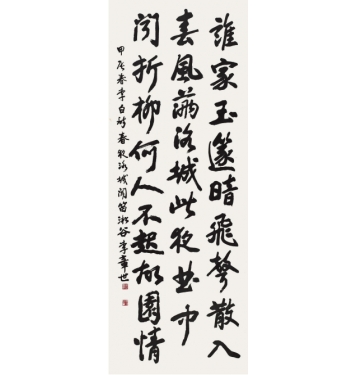 誰家玉篴暗飛聲散入
春風滿洛城此夜曲中
聞折柳何人不起故園情
甲辰春李白詩春夜洛城聞笛谷李世